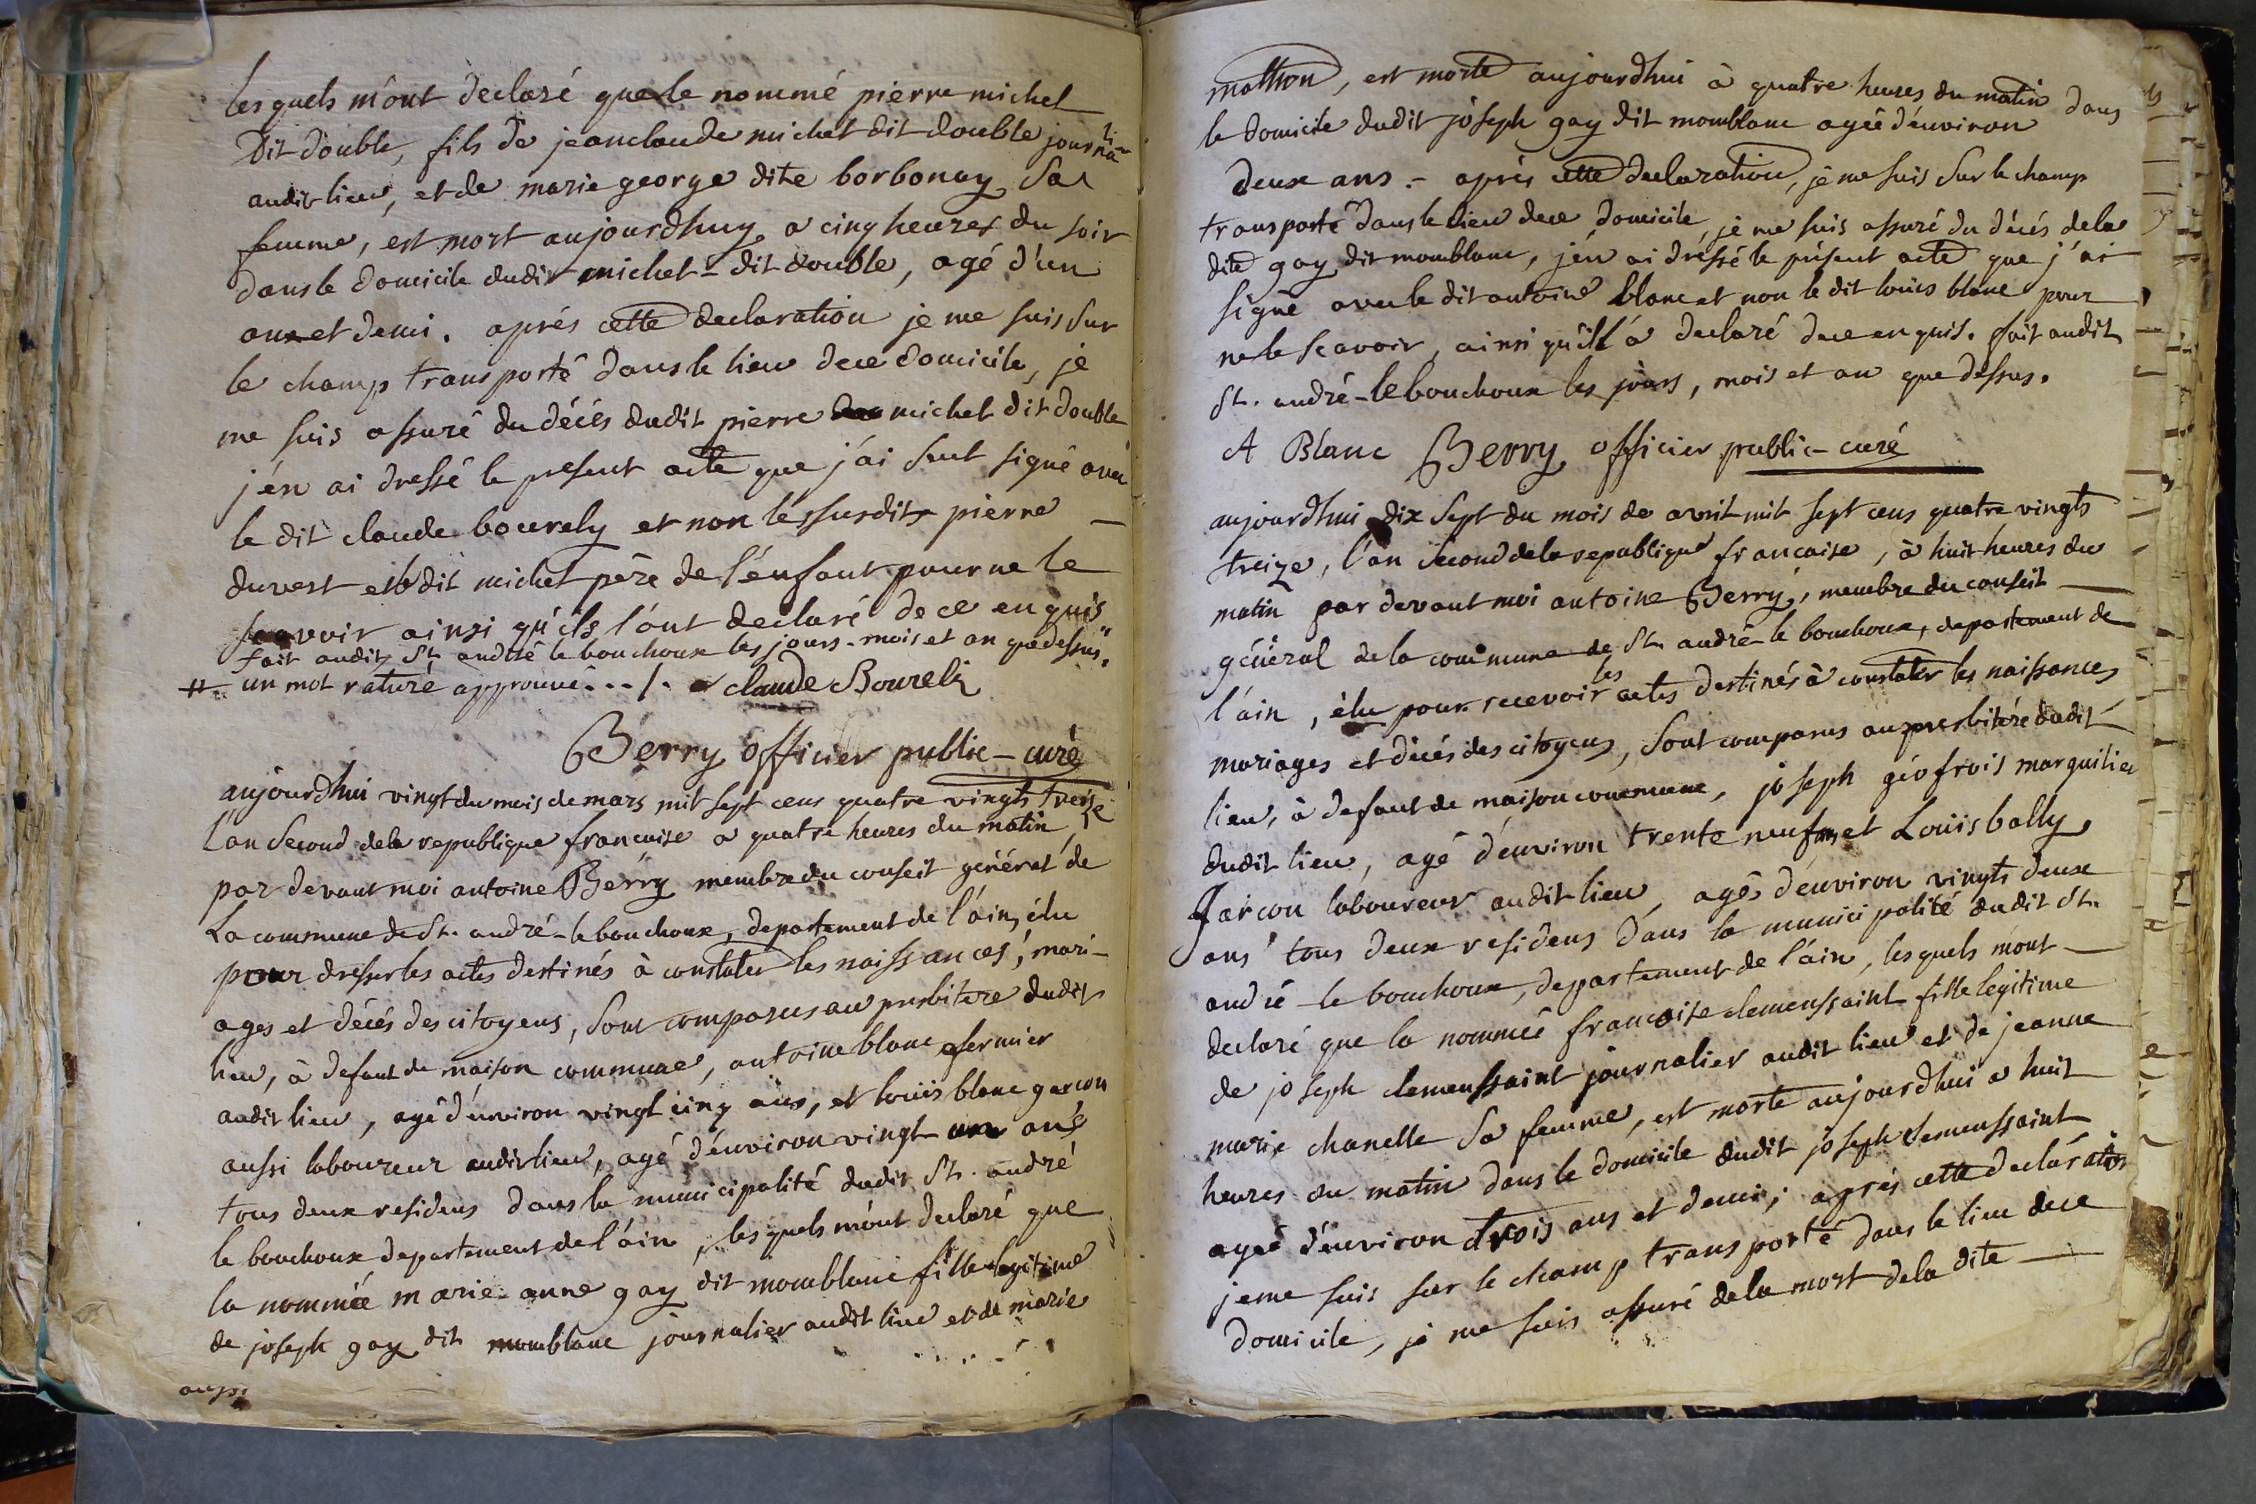 les quels m'ont declaré que le nommé pierre michel
dit double, fils de jean claude michel dit double journa
li
audit lieu, et de marie george dite borbonay sa
femme, est mort aujourdhuy a cinq heures du soir
dans le domicile dudit michel - dit double, agé d'un
ans et demi. aprés cette declaration je me suis sur
le champ transporté dans le lieu de ce domicile, je
me suis assuré du décés dudit pierre michel dit double
j'én ai dressé le present acte que j'ái seul signé avec
le dit claude bourely et non lés susdits pierre
duvest et le dit michel père de l'énfant pour ne le
sçavoir ainsi qu'ils l'ónt declaré de ce enquis
fait audit St. andré le bouchoux les jours - mois et an que dessus
# un mot raturé approuvé . . . / . claude Bourely
Berry officier public - curé
aujourdhui vingt du mois de mars mil sept cens quatre vingts treize
l'an second de la republique françaisse a quatre heures du matin
par devant moi antoine Berry membre du conseil général de
La commune de St. andré - le bouchoux, departement de l'áin, élu
pour dresser les actes destinés à constater les naissances, mari-
ages et décés des citoyens, sont comparus au presbitere dudit
lieu, à defaut de maison commune, antoine blanc fermier
audit lieu, agé d'énviron vingt cinq ans, et louis blanc garçon
aussi laboureur audit lieu, agé d'énviron vingt un ans
tous deux residens dans la municipalité dudit St. andré
le bouchoux departement de l'áin, les quels m'ont declaré que
la nommée marie - anne gay dit momblanc fille legitime
de joseph gay dit momblanc journalier audit lieu et de marie
mathon, est morte aujourdhui à quatre heures du matin dans
le domicile dudit joseph gay dit momblanc agée d'énviron
deux ans. - aprés cette declaration, je me suis sur le champ
transporté dans le lieu de ce domicile, je me suis assuré du décés de la
dite gay dit momblanc, j'én ai dréssé le présent acte que j'ai
signé avec le dit antoine blanc et non le dit louis blanc pour
ne le scavoir, ainsi qu'il l'á declaré de ce enquis. fait audit
St. andré - le bouchoux les jours, mois et an que dessus.
A Blanc Berry officier public - curé
aujourdhui dix sept du mois de avril mil sept cens quatre vingts
treize, l'an second de la republique francaise, à huit heures du
matin par devant moi antoine Berry, membre du conseil
général de la commune de St. andré - le bouchoux, departement de
l'áin, élu pour recevoir les actes destinés à constater les naissances
mariages et décés des citoyens, sont comparus au presbitére dudit
lieu, à defaut de maison commune, joseph géofrois marguilier
dudit lieu, agé d'énviron trente neuf ans et Louis bally
garcon laboureur audit lieu, agés d'énviron vingts deux
ans tous deux residens dans la municipalité dudit St.
andré - le bouchoux, departement de l'áin, les quels mont
declaré que la nommée francoise clemenssaint fille legitime
de joseph clemenssaint journalier audit lieu et de jeanne
marie chanelle sa femme, est morte aujourdhui a huit
heures du matin dans le domicile dudit joseph clemenssaint
agée d'énviron trois ans et demi; aprés cette declaration
je me suis sur le champ transporté dans le lieu de ce
domicile, je me suis assuré de la mort de la dite